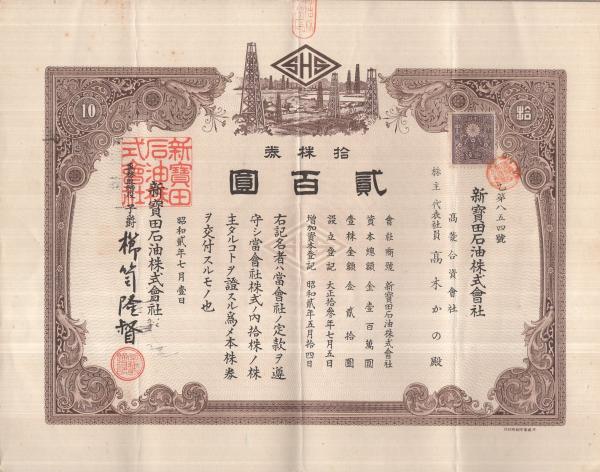 SHS
10
拾
拾株券
貳百圓
第八五四號
新寶田石油株式會社
高菱合資會社
株主 代表社員 髙木かの殿
會社商號 新寶田石油株式會社
資本總額 金壹百萬圓
壹株金額 金貳拾圓
設立登記 大正拾叁年七月五日
増加資本登記 昭和貳年五月拾四日
右記名者ハ當會社ノ定款ヲ遵
守シ當會社株式ノ内拾株ノ株
主タルコトヲ證スル爲メ本株券
ヲ交付スルモノ也
昭和貳年七月壹日
新寶田石油株式會社
子爵 櫛笥隆督
新寶田
石油株
式會社